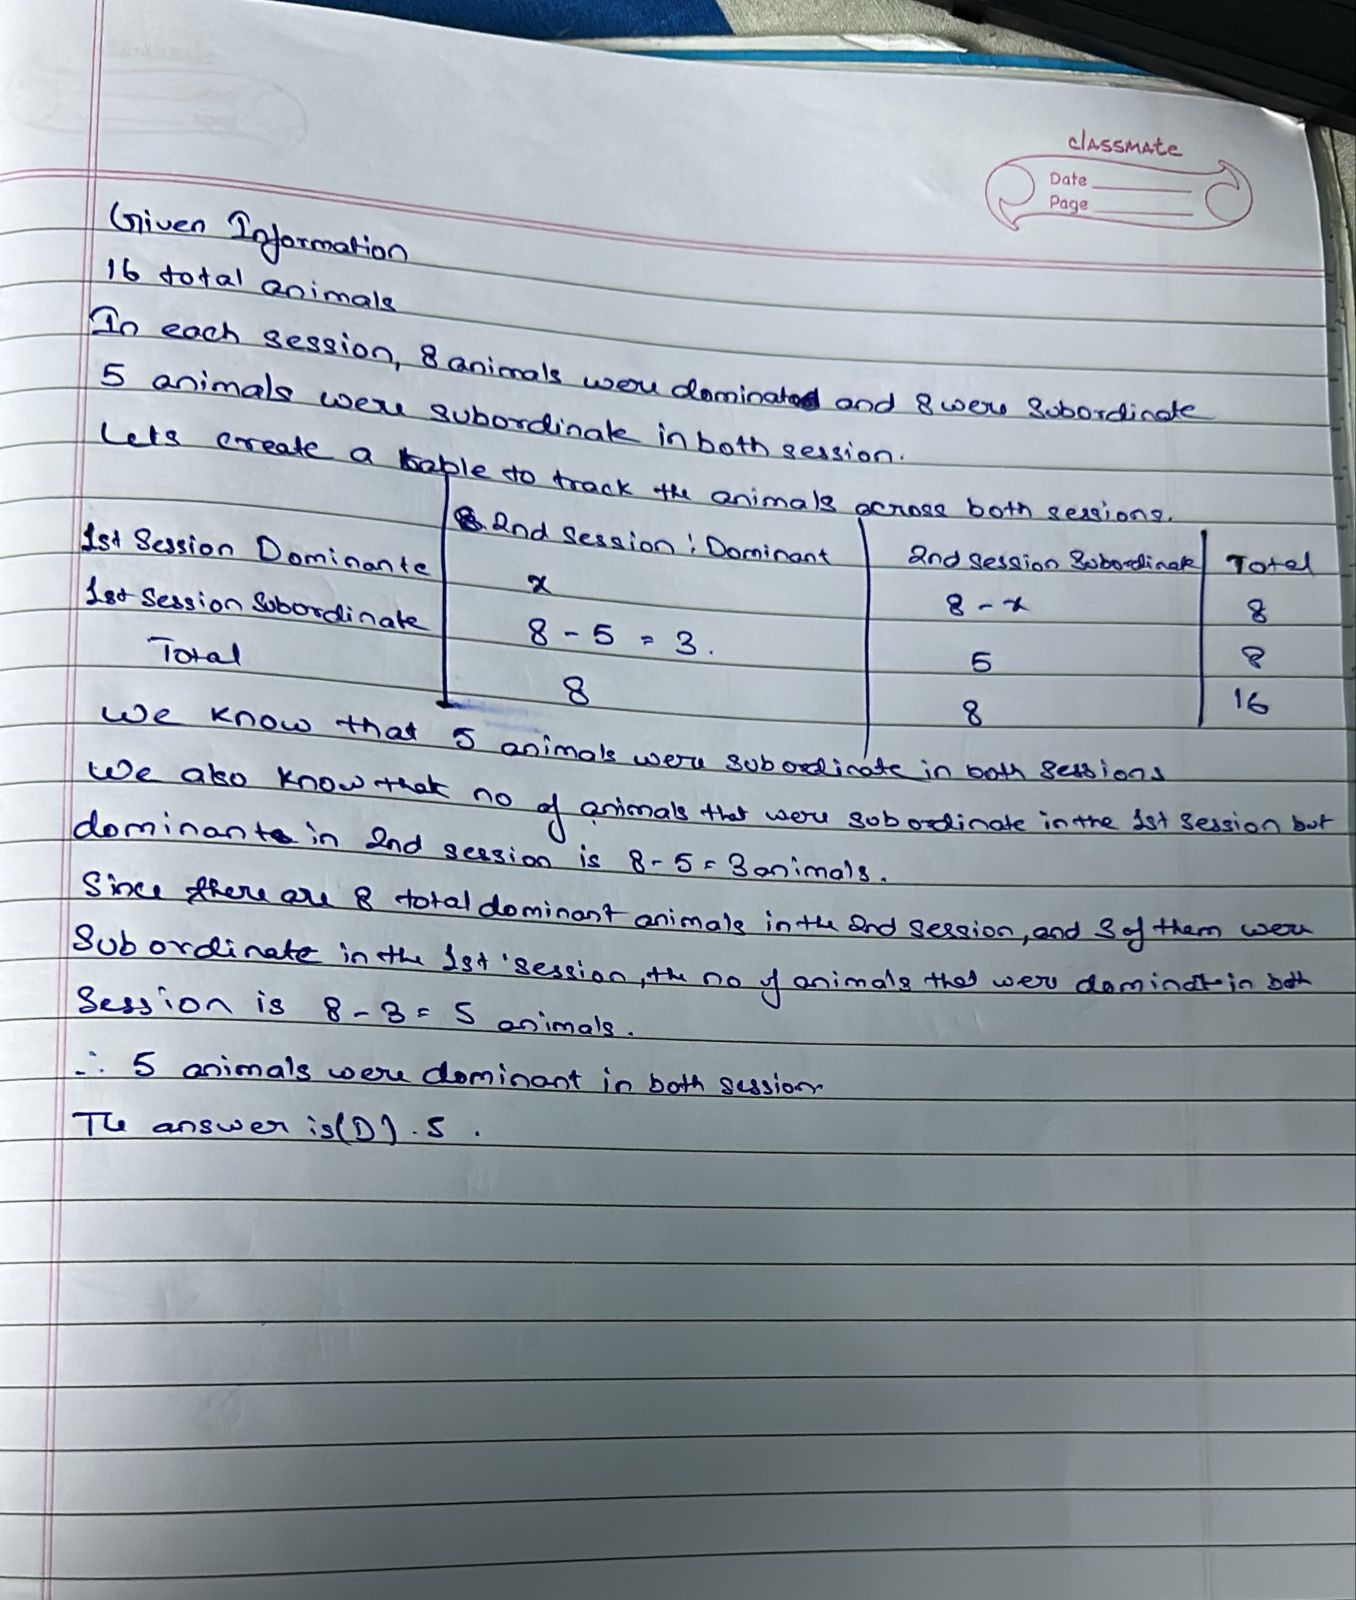 classmate
Date
Page
Given Information
16 total animals
In each session, 8 animals were dominated and 8 were Subordinate
5 animals were subordinate in both session.
Lets create a table to track the animals across both sessions.
2nd Session : Dominant 2nd Session Subordinate Total
1st Session Dominante x 8 - x 8
1st Session Subordinate 8 - 5 = 3. 5 8
Total 8 8 16
We know that 5 animals were subordinate in both sessions
We also know that no of animals that were subordinate in the 1st session but
dominante in 2nd session is 8 - 5 = 3 animals.
Since there are 8 total dominant animals in the 2nd session, and 3 of them were
Subordinate in the 1st session, the no of animals that were dominate in both
Session is 8 - 3 = 5 animals.
∴ 5 animals were dominant in both session
The answer is (D) . 5 .